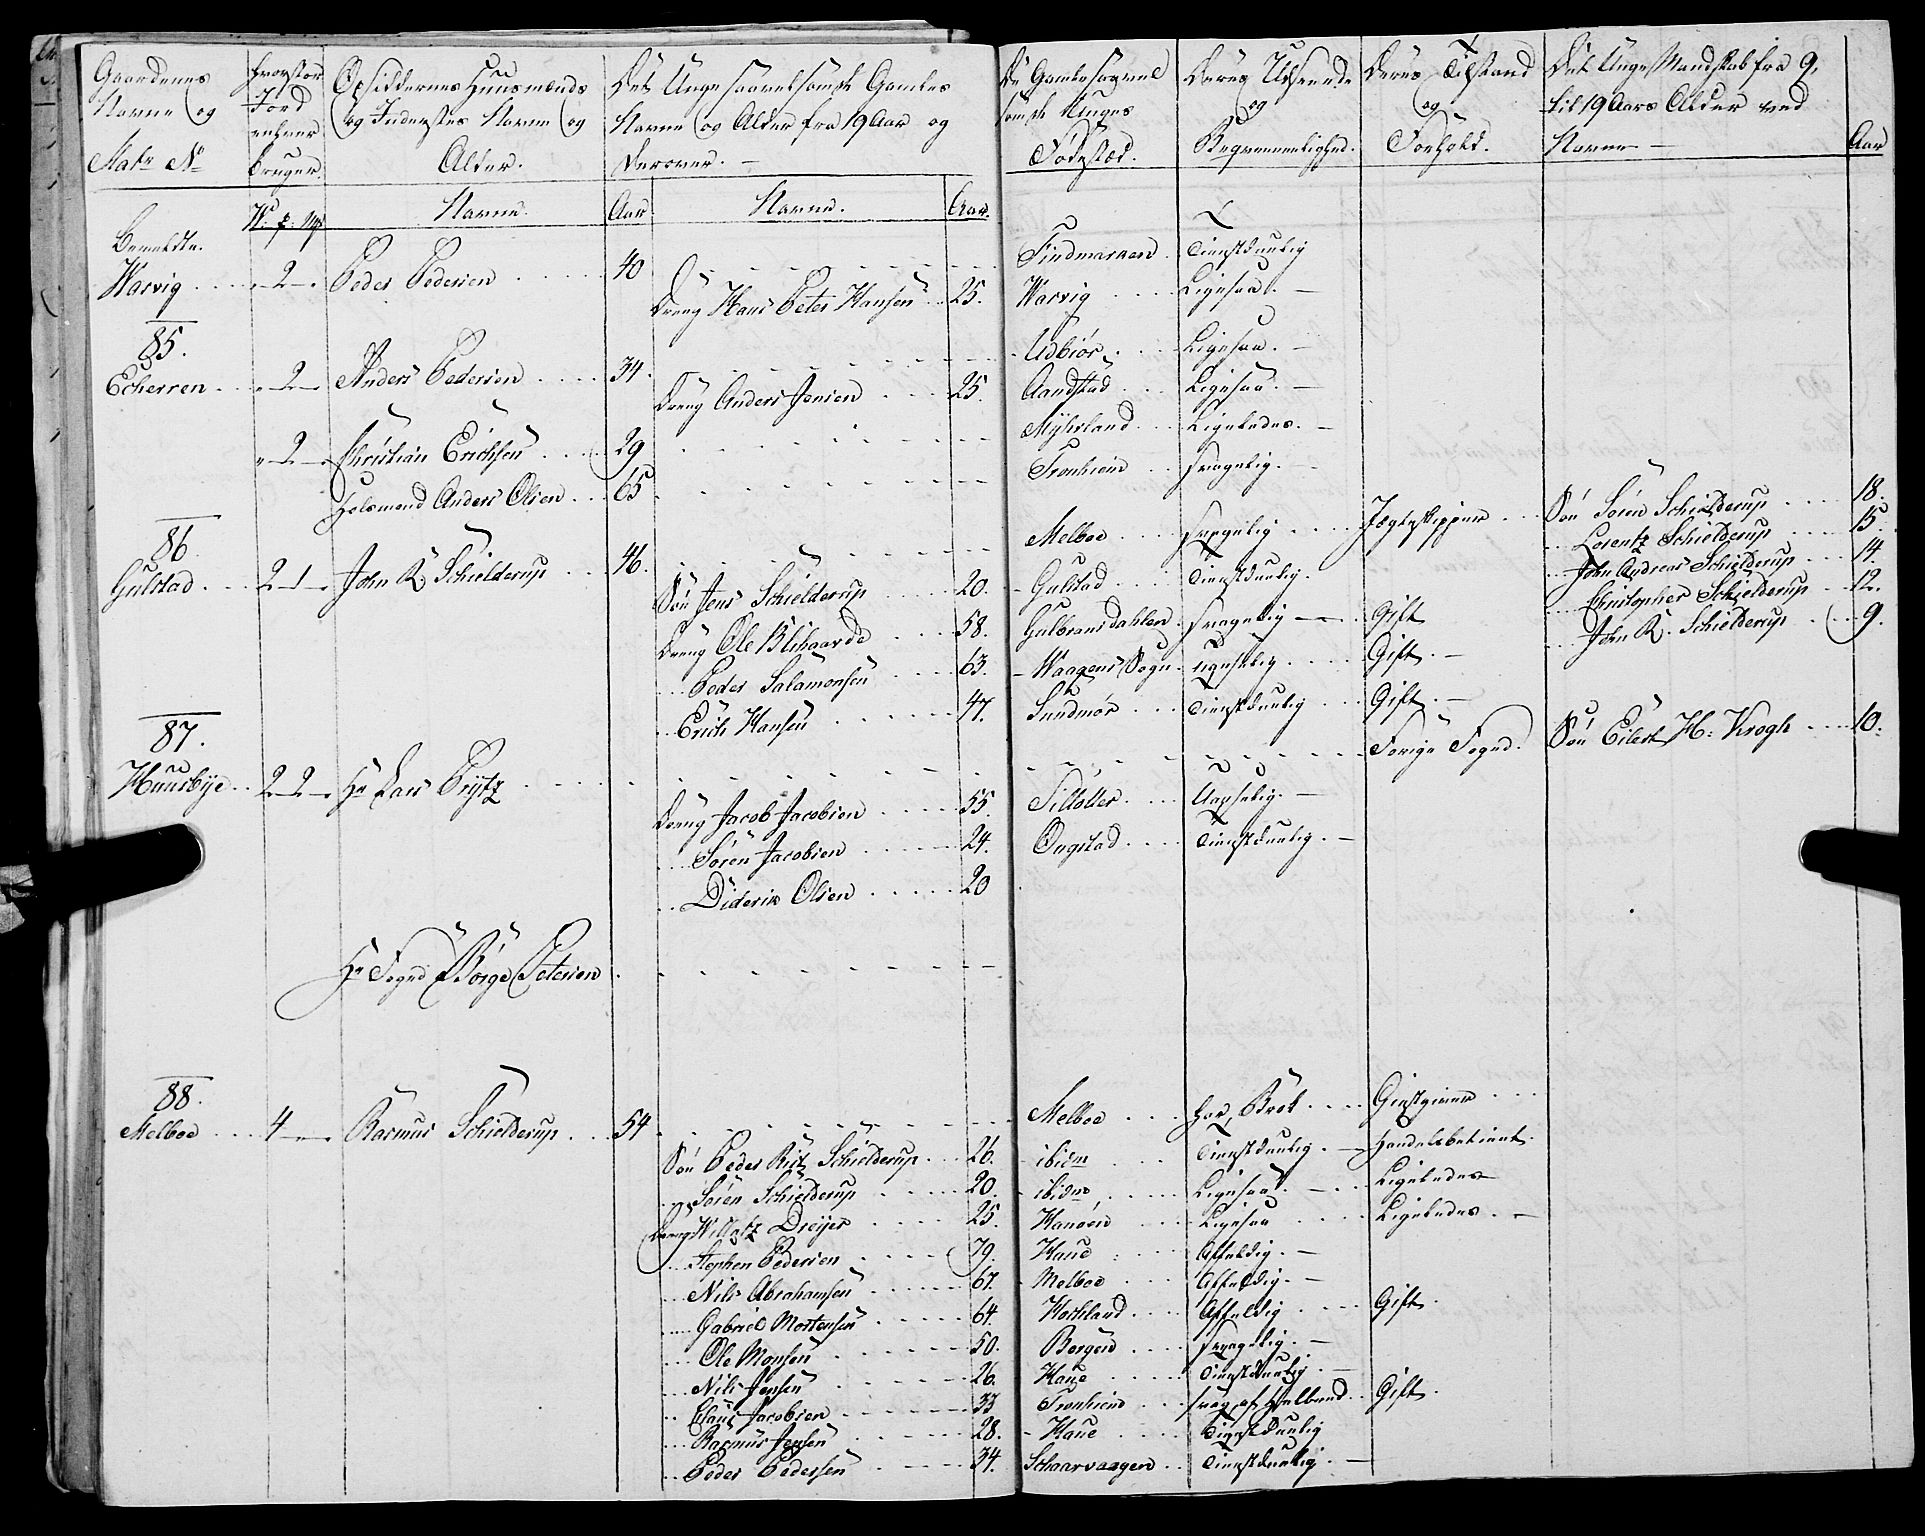 Gaardenes Navne og Matr No
Hvorstor Jord enhver bruger.
Opsiddernes Huusmænds og Inderstes Navne og Alter.
Det Unge saavelsom de Gamles Navne og Alder fra 19 Aar og derover. —
De Gamle saavel som de Unges Fødested.
Deres Udseende og Beqvemmelighed.
Deres Tilstand og Forhold.
Det Unge Mandskab fra 9. til 19 Aars Alder ved Navne —
Aar
W. p. mk
Navne. Aar Navne. Aar.
Bemeldte
Warvig . . . . 2 — Peder Pedersen . . . . . 40 Findmarken . Tienstdulig
Dreng Hans Peter Hansen . . 25. Warvig . . . . Ligesaa. —
85.
Echerren . . . 2 — Anders Pedersen . . . . . 34. Udbiør . . . . Ligesaa. —
Dreng Anders Jensen . . . 25. Aandstad . . . Ligesaa. —
2 — Christian Erichsen . . . . 29 Myhrland . . . Ligeledes. —
Holsmand Anders Olsen . . . 65 Tronhiem . . svagelig. —
86.
Gulstad . . . 2 1 — John R. Schielderup . . . 46. Melboe . . . svagelig . . . . Jægteskipper . . . Søn Søren Schielderup . . . . 18.
Lorentz Schielderup . . . . 15.
Søn Jens Schielderup . . . . 20. Gulstad . . . Tienstdulig. John Andreas Schielderup . . . 14.
Dreng Ole Blihaarde . . . 58. Gulbransdahlen . svagelig — . . Gift Christopher Schielderup . . 12.
Peder Salamonsen . . . 63. Waagens Sogn . Uførlig . . . . Gift. — John R. Schielderup . . . 9.
Erich Hansen . . . . . . 47. Sundmør . . . Tienstdulig . . . Gift. —
87.
Huusbye . . 2 2 — Hr Lars Prytz . . . . . . . Forige Fogud. Søn Eilert H. Krogh . . . . 10.
Dreng Jacob Jacobsen . . . . 55. Tilløller . . . .
Søren Jacobsen . . . . . 24. Ongstad . . . . Tienstdulig. —
Diderik Olsen . . . . . 20
Hr Fogud Børge Petersen .
88.
Melboe . . . 4 — Rasmus Schielderup . . . 54 Melboe . . . har Brok . . . . Giestgiver . . .
Søn Peder Rist Schielderup . . . 26. ibidm . . . Tienstdulig. — Handelsbetient.
Søren Schielderup . . . . . 20. ibidm . . . . Ligesaa. — . . Ligeledes
Dreng Willatz Dreyer . . . . 25. Hanøen . . . Ligesaa . . . . Ligeledes. —
Stephen Pedersen . . . . . 79. Haue . . . . Affeldig. —
Nils Abrahamsen . . . . . 67. Melboe . . . . Affeldig. —
Gabriel Mortensen . . . . . 64. Hochland . . . Affeldig . . . . Gift.
Ole Monsen . . . . . . . 50. Bergen . . . . svagelig. —
Nils Jensen . . . . . . 26. Haue . . . . Tienstdulig. —
Claus Jacobsen . . . . . . 33 Tronhiem . . . svag af Helbred . Gift.
Rasmus Jensen . . . . . . 28. Haue . . . . Tienstdulig
Peder Pedersen . . . . . 34. Schaarvaagen . . Tienstdulig. —